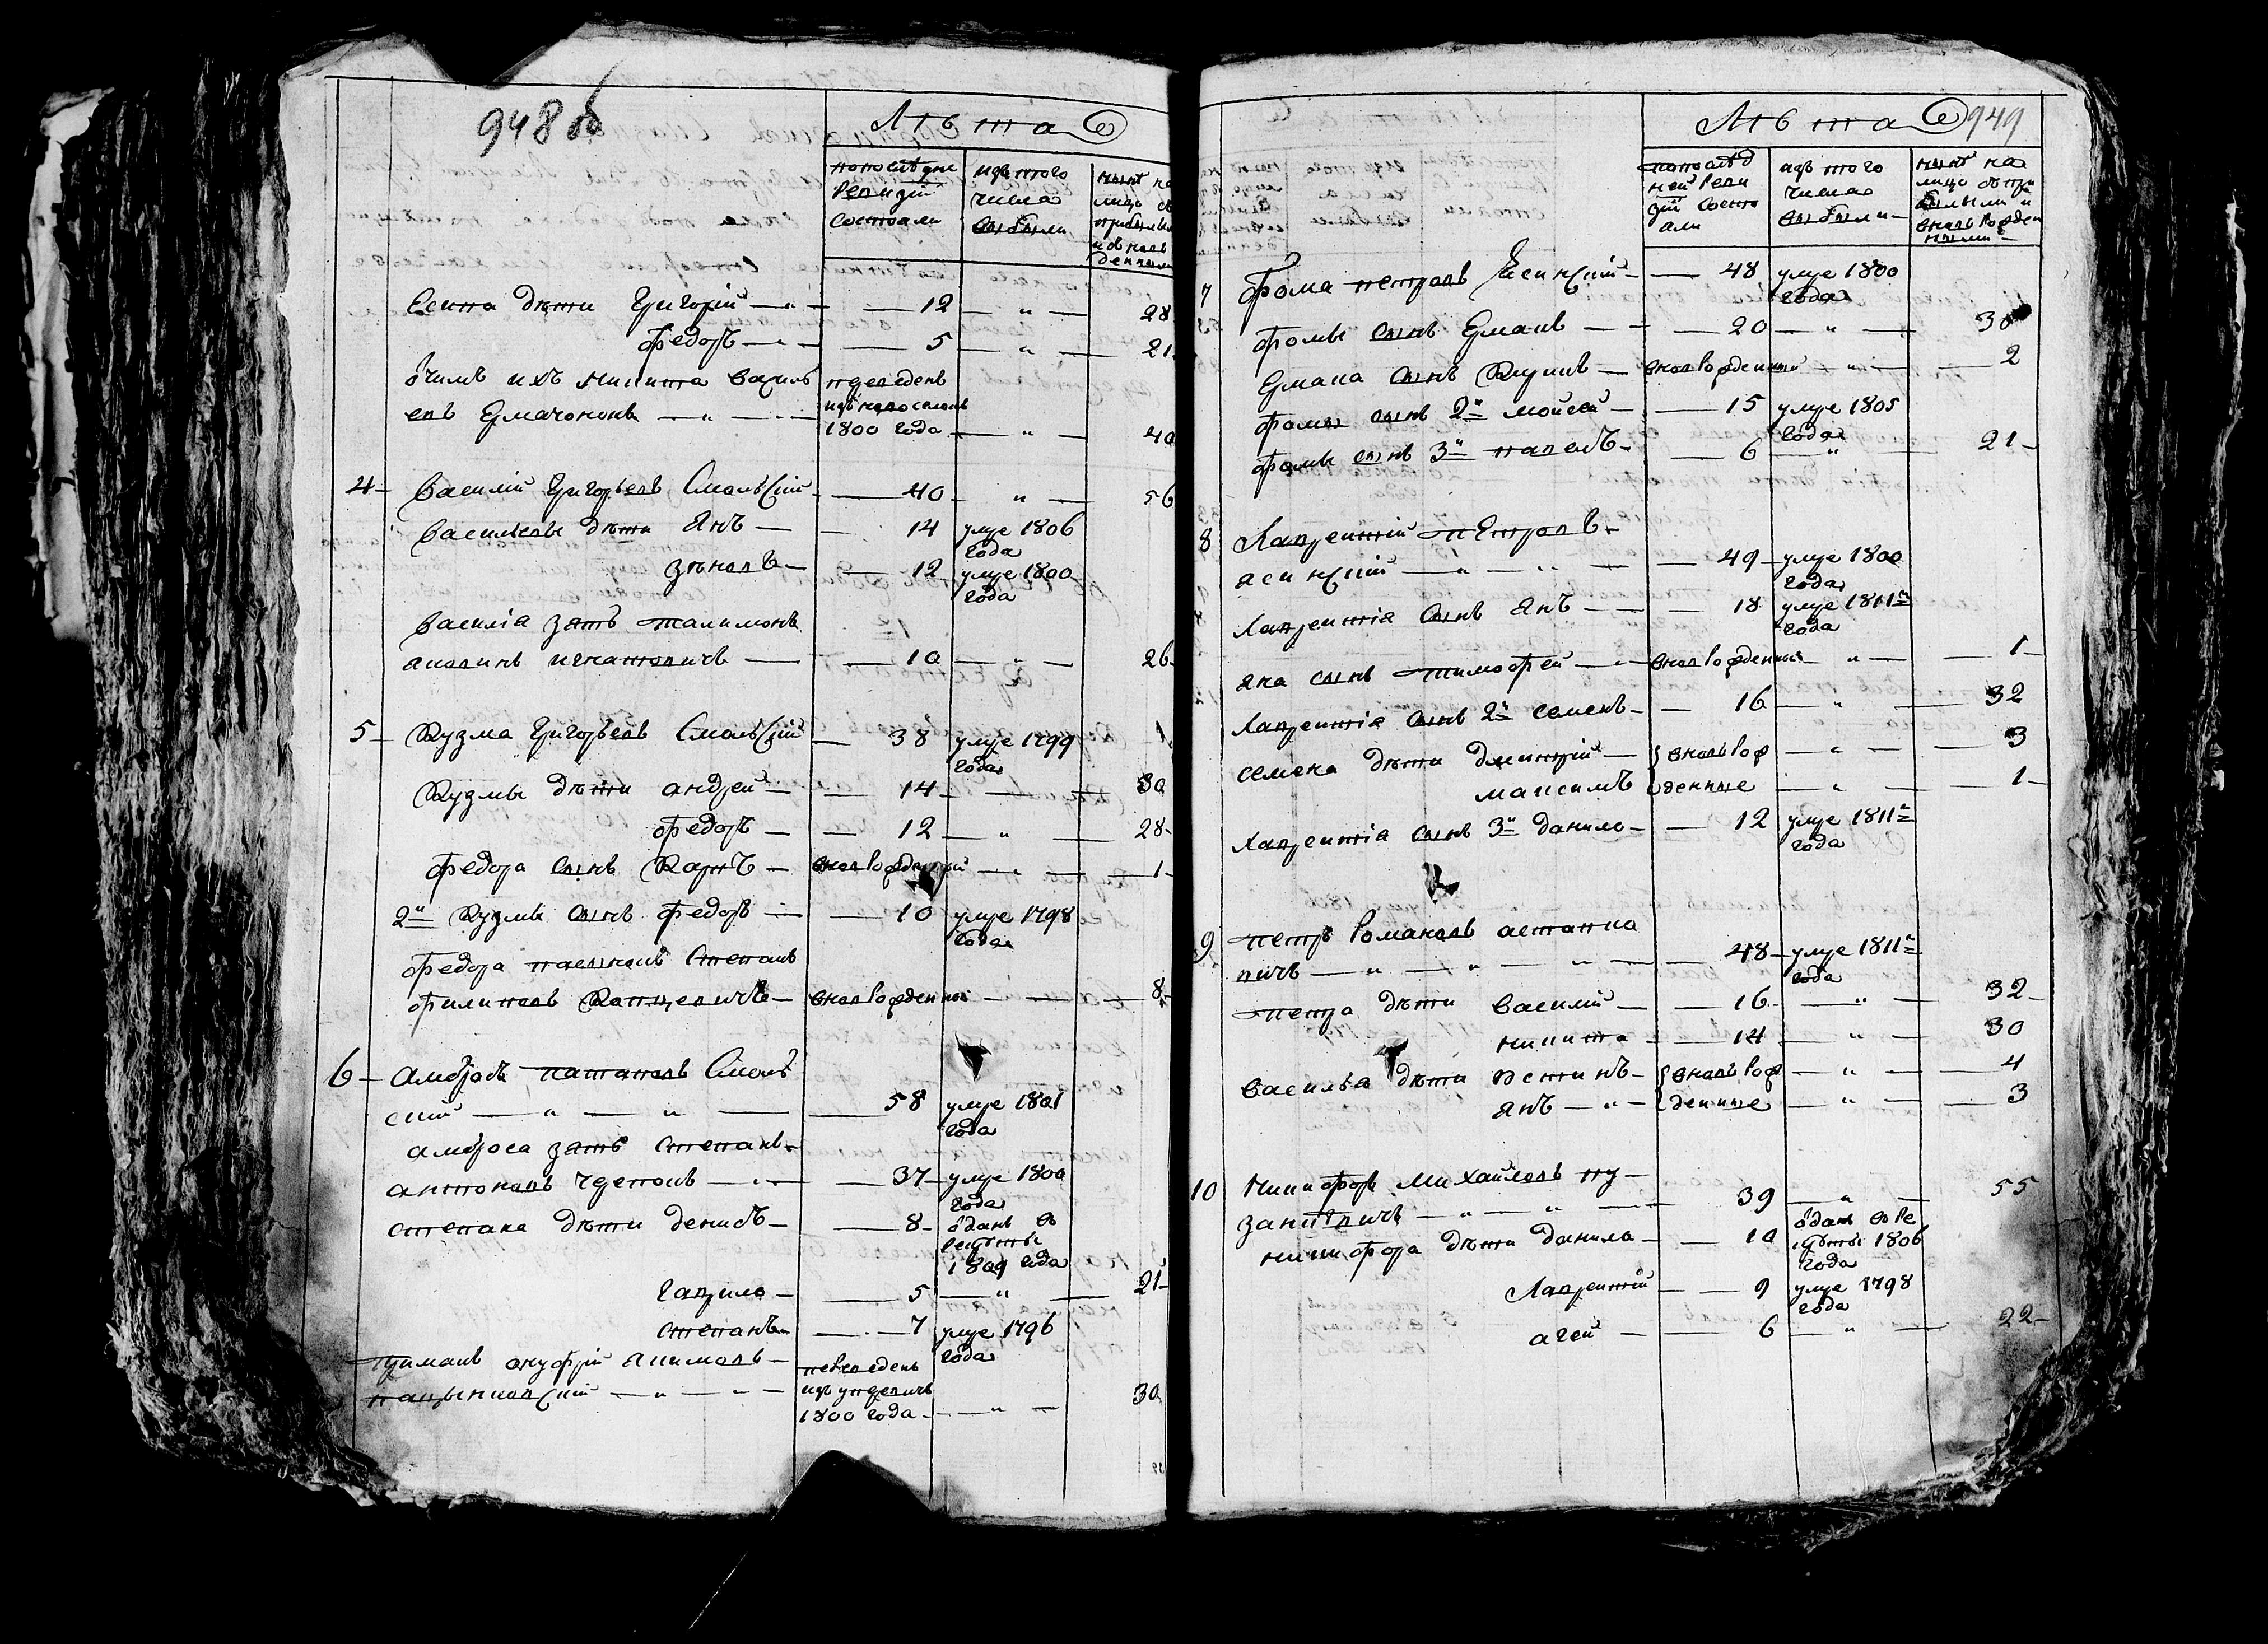 948 об
Лѣта
попослѣдне
Ревизіи
состояли
изъ того
числа
выбыли
нынѣ на
лицо съ
прибылы
и внавь
денными
Есипа дѣти Григорій — 12 — 28
Федоръ — 5 — 21
отчимъ ихъ Никита Василь
евъ Ермачонокъ —
1800 года — 40
4 — Василій Григорьевъ Смольскій — 40 — 56
Васильевы дѣти Янъ — 14 умре 1806
года
Зѣновъ — 12 умре 1800
года
Василія зять Талимонъ
игнатовичъ — 10 — 26
5 — Кузма Григорьевъ Смольскій — 38 умре 1799
года
Кузмы дѣти андрей — 14 — 30
федоръ — 12 — 28
федора сынъ Карпъ — вновь рожденный — 1
2й Кузмы сынъ федоръ — 10 умре 1798
года
федора пасынокъ Степанъ
филиповъ — вновь рожденный — 8
6 — Амбросъ Смоль
скій — 58 умре 1801
года
амброса зять степанъ
антоновъ — 37 умре 1800
года
степана дѣти денисъ — 8 одданъ въ
рекруты
1809 года
гаврило — 5 — 21
степанъ — 7 умре 1796
года
примакъ онуфрій Якимовъ — переведенъ
изъ
1800 года — 30
Лѣта 949
попослѣд
ней Реви
зіи состо
яли
изъ того
числа
выбыли
нынѣ на
лицо съ при
былыми и
вновь рожден
ными
7 Фома петровъ Ясинскій — 48 умре 1800
года
фомы сынъ Ермакъ — 20 — 36
Ермака сынъ — вновь рожденный — 2
фомы сынъ 2й мойсей — 15 умре 1805
года
фомы сынъ 3й павелъ — 6 — 21
8 Лаврентій петровъ
ясинскій — 49 умре 1800
года
Лаврентія сынъ Янъ — 18 умре 1811го
года
яна сынъ тимофей — вновь рожденный — 1
Лаврентія сынъ 2й семенъ — 16 — 32
семена дѣти дмитрій — вновь рож — 3
максимъ денные — 1
Лаврентія сынъ 3й данило — 12 умре 1811го
года
9 петръ Романовъ астапко
вичъ — 48 умре 1811го
года
петра дѣти василій — 16 — 32
никита — 14 — 30
василья дѣти Устинъ — вновь рож — 4
янъ — денные — 3
10 Никифоръ михайловъ пу
заневичъ — 39 — 55
никифора дѣти данила — 10 одданъ въ ре
круты 1806
года
Лаврентій — 9 умре 1798
года
агей — 6 — 22